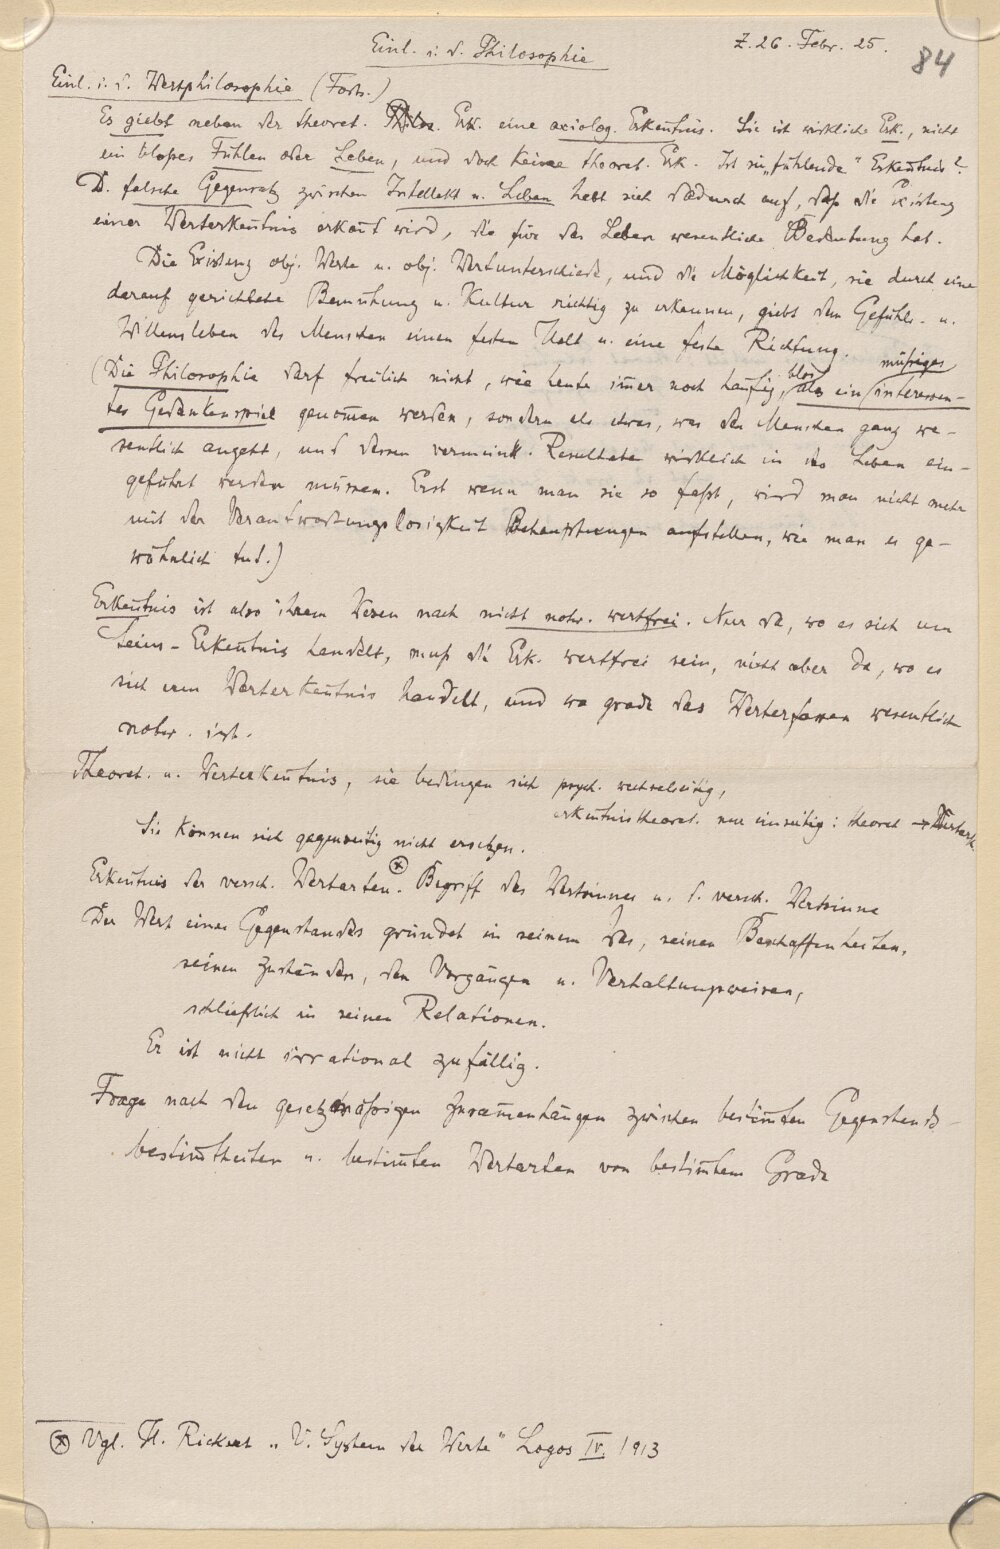 Einl. i. d. Philosophie
Z. 26. Febr. 25.
84
Einl. i. d. Wertphilosophie (Forts.)
Es giebt neben der theoret. Erk. eine axiolog. Erkenntnis. Sie ist wirkliche Erk., nicht
ein bloßes Fühlen oder Leben, und doch keine theoret. Erk. Ist sie „fühlende“ Erkenntnis?
D. falsche Gegensatz zwischen Intellekt u. Leben hebt sich dadurch auf, daß die Existenz
einer Werterkenntnis erkannt wird, die für das Leben wesentliche Bedeutung hat.
Die Existenz obj. Werte u. obj. Wertunterschiede, und die Möglichkeit, sie durch eine
darauf gerichtete Bemühung u. Kultur richtig zu erkennen, giebt dem Gefühls- u.
Willensleben des Menschen einen festen Halt u. eine feste Richtung.
(Die Philosophie darf freilich nicht, wie heute im̅er noch häufig, blos als ein müßiges interessan-
tes Gedankenspiel genom̅en werden, sondern als etwas, was den Menschen ganz we-
sentlich angeht, und dessen vermeintl. Resultate wirklich in das Leben ein-
geführt werden müssen. Erst wenn man sie so faßt, wird man nicht mehr
mit der Verantwortungslosigkeit Behauptungen aufstellen, wie man es ge-
wöhnlich tut.)
Erken̅tnis ist also ihrem Wesen nach nicht notw. wertfrei. Nur da, wo es sich um
Seins-Erken̅tnis handelt, muß die Erk. wertfrei sein, nicht aber da, wo es
sich um Werterken̅tnis handelt, und wo grade das Werterfassen wesentlich
notw. ist.
Theoret. u. Werterken̅tnis, sie bedingen sich psych. wechselseitig,
erken̅tnistheoret. nur einseitig: theoret → Werterk.
Sie können sich gegenseitig nicht ersetzen.
Erken̅tnis der versch. Wertarten. ⊗ Begriff des Wertsinnes u. d. versch. Wertsinne
Der Wert eines Gegenstandes gründet in seinem Was, seinen Beschaffenheiten,
seinen Zuständen, den Vorgängen u. Verhaltungsweisen,
schließlich in seinen Relationen.
Er ist nicht irrational zufällig.
Frage nach den gesetzmäßigen Zusam̅enhängen zwischen bestim̅ten Gegenstands-
bestim̅theiten u. bestim̅ten Wertarten von bestim̅tem Grade
⊗ Vgl. H. Rickert „V. System der Werte“ Logos IV. 1913